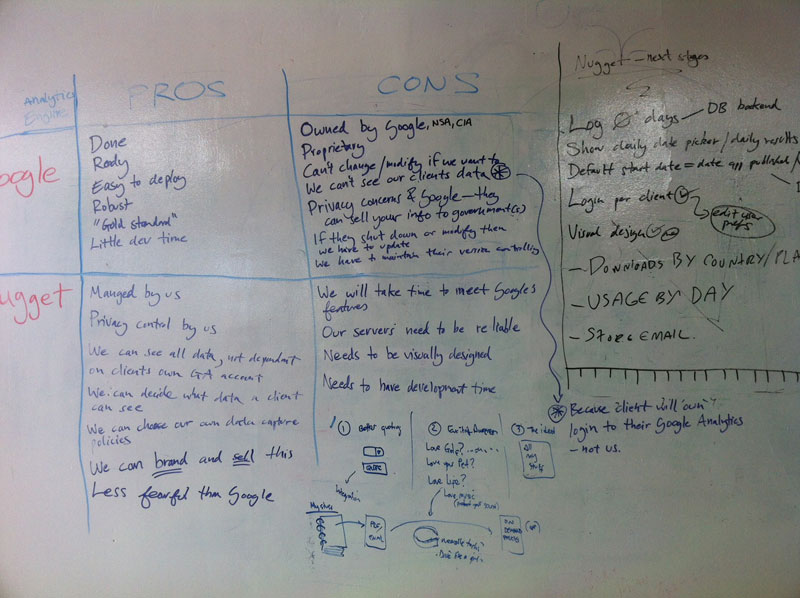 Analytics
Engine
PROS
CONS
oogle
Done
Ready
Easy to deploy
Robust
"Gold standard"
Little dev time
Owned by Google, NSA, CIA
Proprietary
Can't change/modify if we want to
We can't see our clients data *
Privacy concerns & Google — they
can sell your info to government(s)
If they shut down or modify then
we have to update
We have to maintain their version controlling
ugget
Manged by us
Privacy control by us
We can see all data, not dependant
on clients own GA account
We can decide what data a client
can see
We can choose our own data capture
policies
We can brand and sell this
Less fearful than Google
We will take time to meet Google's
features
Our servers need to be reliable
Needs to be visually designed
Needs to have development time
Nugget — next stages
Log days — DB backend
Show daily date picker / daily results
Default start date = date app published /
Login per client
edit user
prefs
Visual design
— DOWNLOADS BY COUNTRY/PLA
— USAGE BY DAY
— STORE EMAIL.
* Because client will 'own'
login to their Google Analytics
— not us.
1 Better quoting
2
3 The ideal
Love Golf? ......
Love your Pet?
Love Life?
Love music